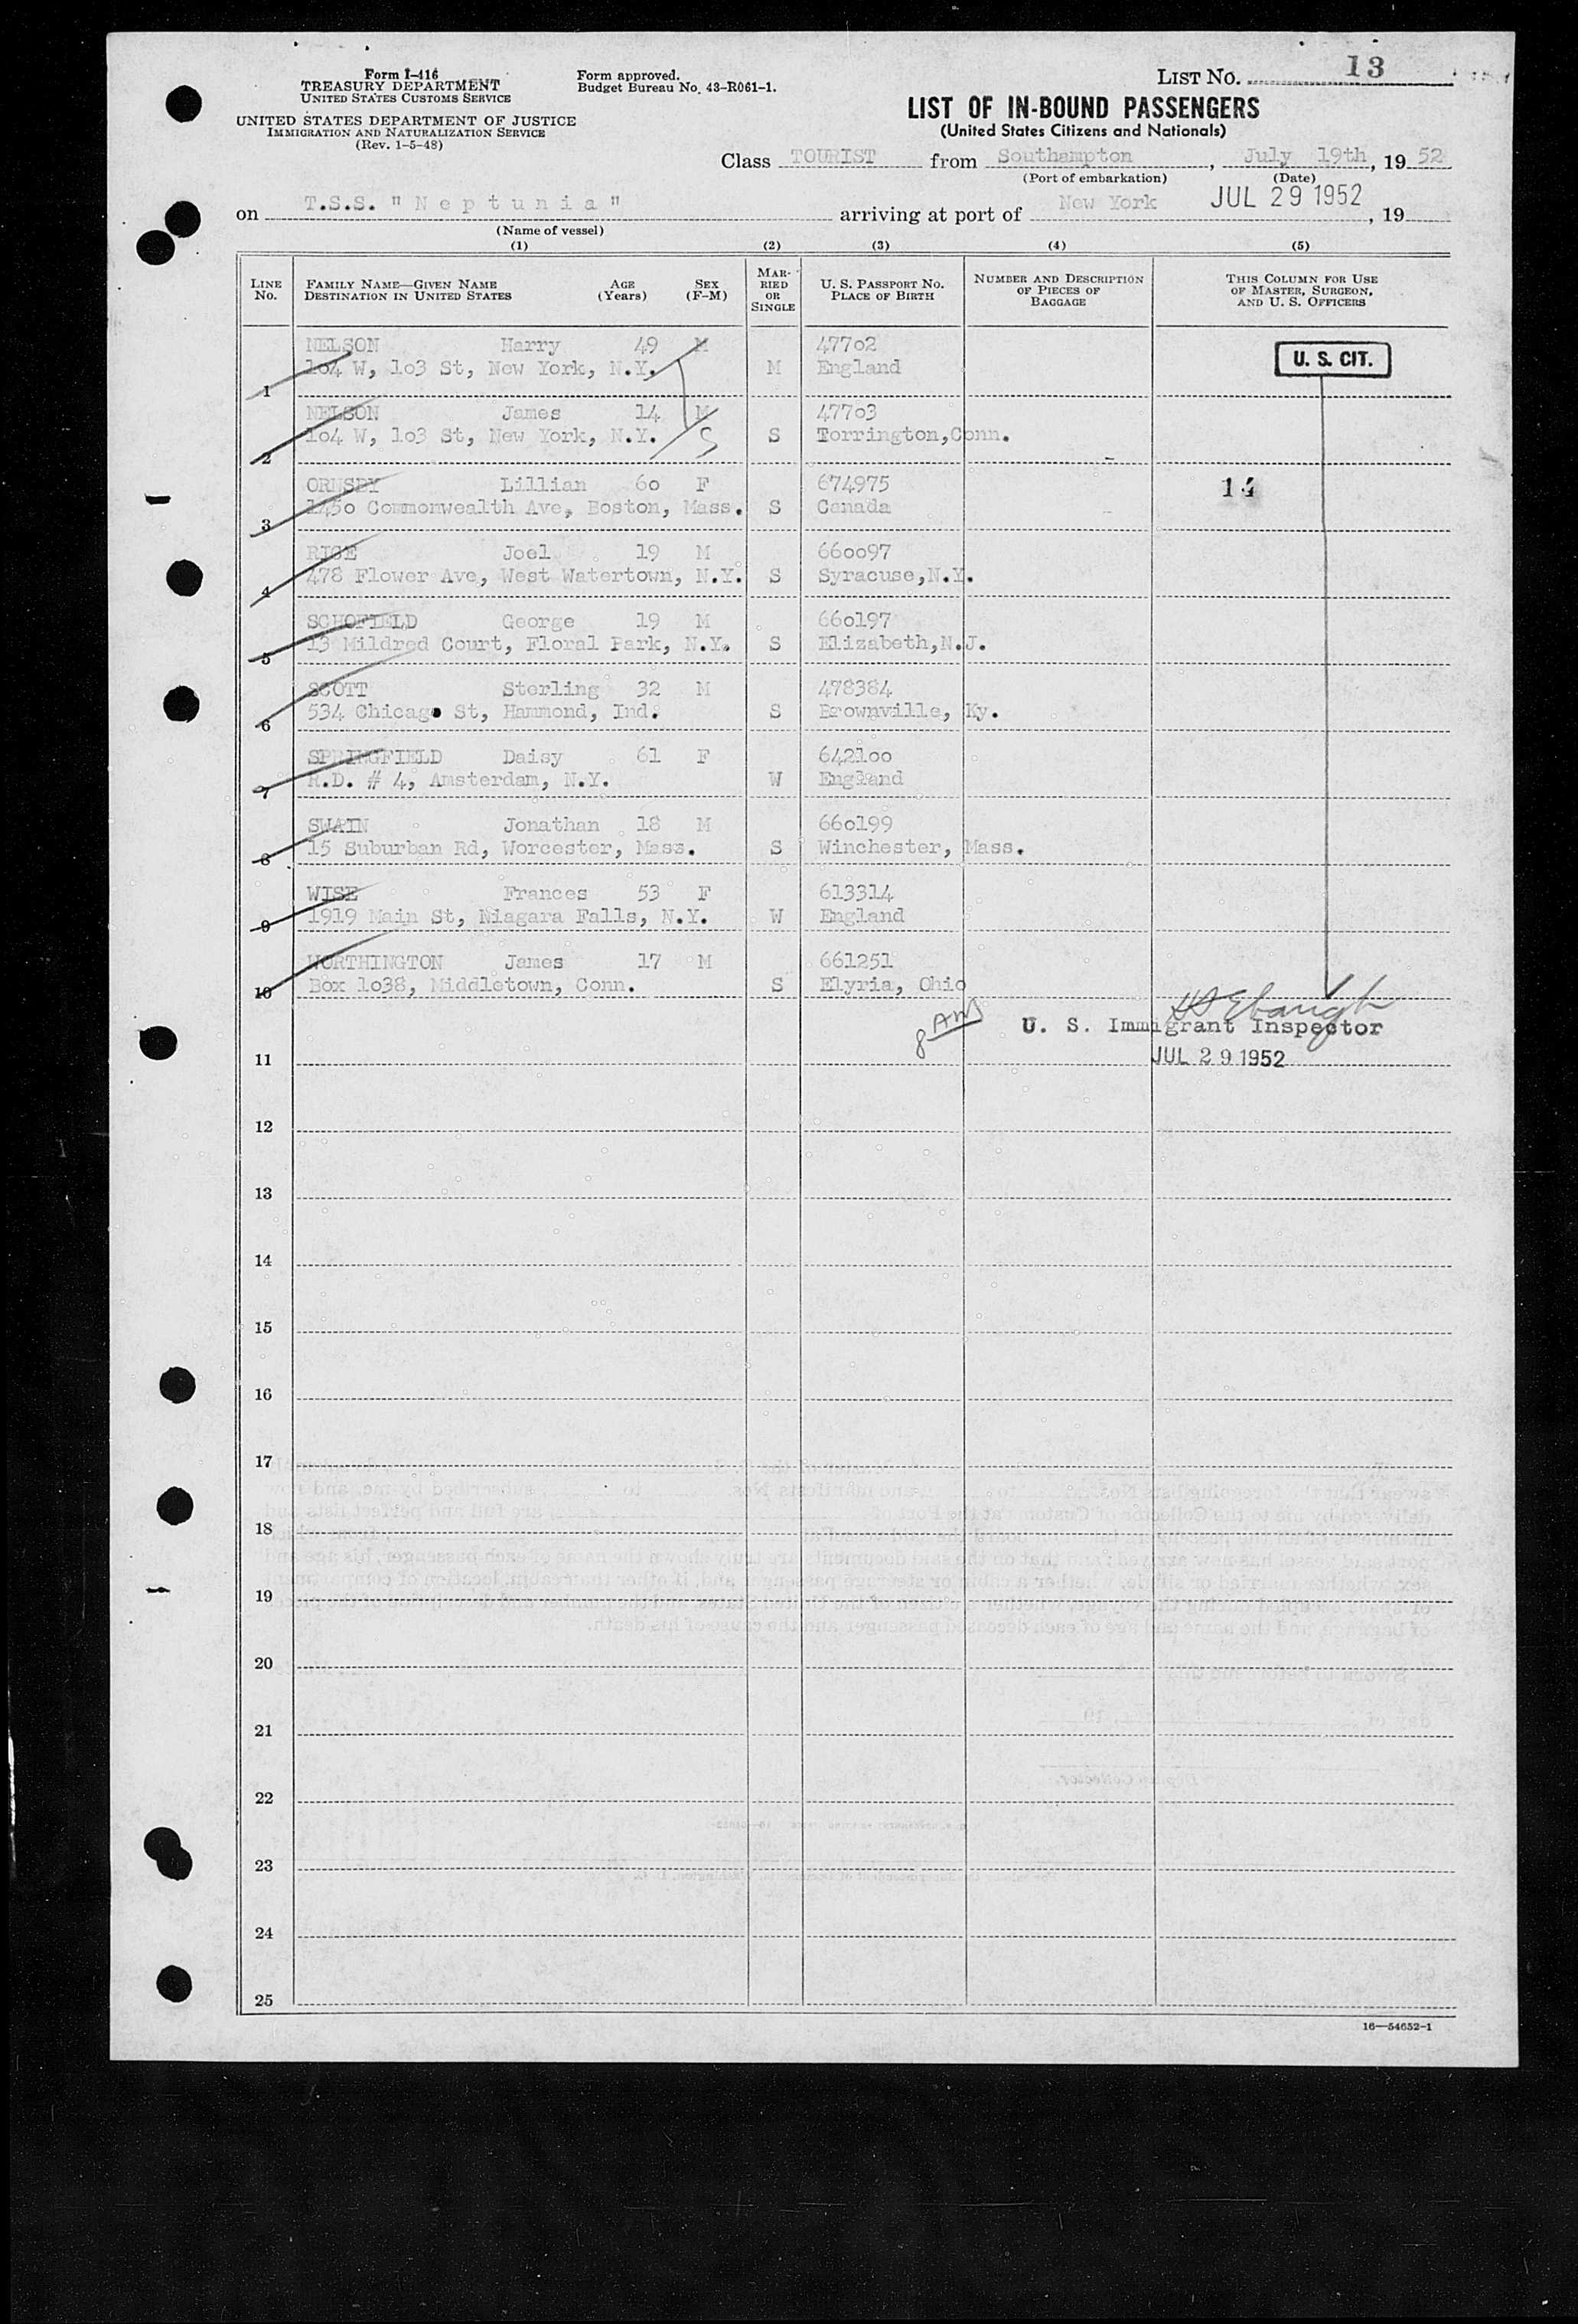 Form I-416
TREASURY DEPARTMENT
UNITED STATES CUSTOMS SERVICE
UNITED STATES DEPARTMENT OF JUSTICE
IMMIGRATION AND NATURALIZATION SERVICE
(Rev. 1-5-48)
Form approved.
Budget Bureau No. 43-R061-1.
LIST NO. 13
LIST OF IN-BOUND PASSENGERS
(United States Citizens and Nationals)
Class TOURIST from Southampton, July 19th, 19 52
(Port of embarkation) (Date)
on T.S.S. "Neptunia" arriving at port of New York JUL 29 1952, 19
(Name of vessel)
(1) (2) (3) (4) (5)
LINE NO. FAMILY NAME—GIVEN NAME DESTINATION IN UNITED STATES AGE (Years) SEX (F-M) MARRIED OR SINGLE U. S. PASSPORT NO. PLACE OF BIRTH NUMBER AND DESCRIPTION OF PIECES OF BAGGAGE THIS COLUMN FOR USE OF MASTER, SURGEON, AND U. S. OFFICERS
NELSON Harry 49 M 47702 U. S. CIT.
1 104 W, 103 St, New York, N.Y. M England
NELSON James 14 M 47703
2 104 W, 103 St, New York, N.Y. S S Torrington, Conn.
ORNSBY Lillian 60 F 674975 14
3 1450 Commonwealth Ave, Boston, Mass. S Canada
RICE Joel 19 M 660097
4 478 Flower Ave, West Watertown, N.Y. S Syracuse, N.Y.
SCHOFIELD George 19 M 660197
5 13 Mildred Court, Floral Park, N.Y. S Elizabeth, N.J.
SCOTT Sterling 32 M 478384
6 534 Chicago St, Hammond, Ind. S Brownville, Ky.
SPRINGFIELD Daisy 61 F 642100
7 R.D. # 4, Amsterdam, N.Y. W England
SWAIN Jonathan 18 M 660199
8 15 Suburban Rd, Worcester, Mass. S Winchester, Mass.
WISE Frances 53 F 613314
9 1919 Main St, Niagara Falls, N.Y. W England
WORTHINGTON James 17 M 661251
10 Box 1038, Middletown, Conn. S Elyria, Ohio
U. S. Immigrant Inspector
11 JUL 29 1952
12
13
14
15
16
17
18
19
20
21
22
23
24
25
16—54652-1